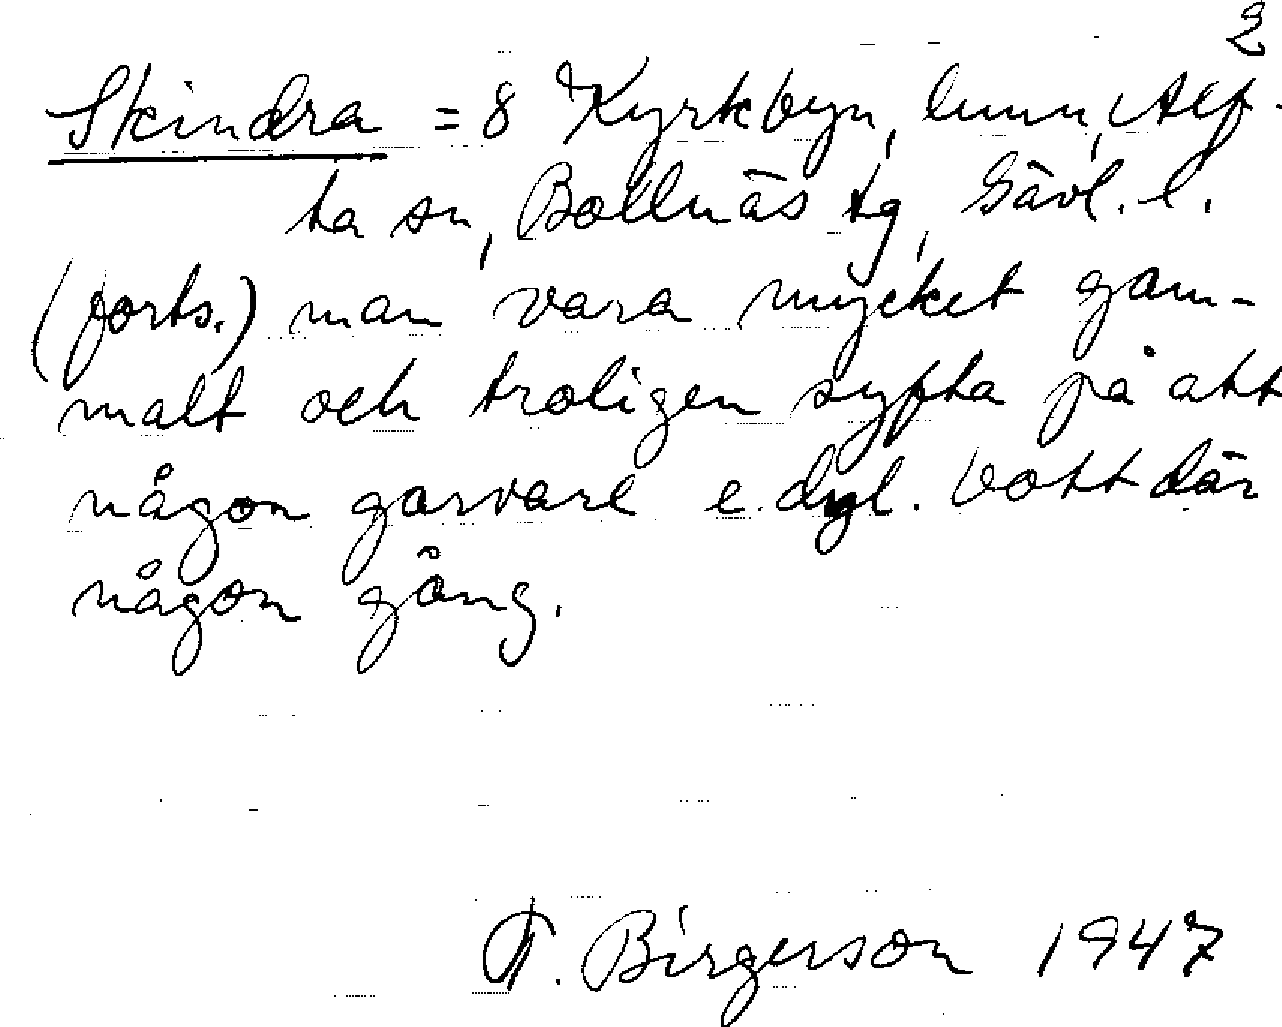 2
Skindra = 8 Kyrkbyn, hmn, Alf-
ta sn, Bollnäs tg, Gävl. l.
(forts.) man vara mycket gam-
malt och troligen syfta på att
någon garvare e. dyl. bott där
någon gång.
F. Birgerson 1947